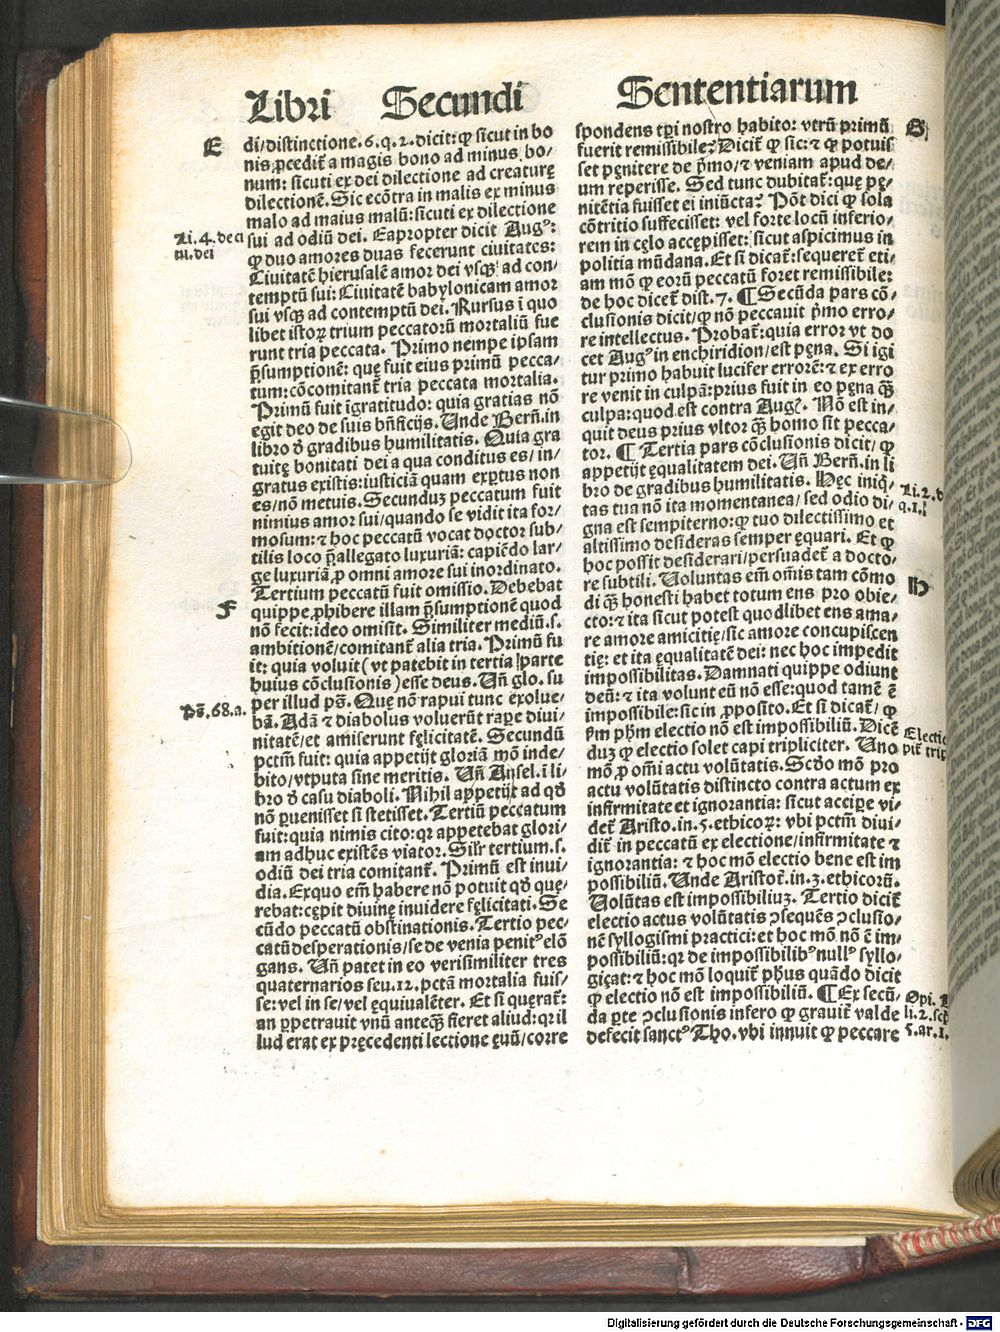 Libri Secundi Sententiarum
E
di/distinctione.6.q.2.dicit:ꝙ sicut in bo
nis ꝓcedit̃ a magis bono ad minus bo/
num: sicuti ex dei dilectione ad creaturę
dilectionẽ. Sic ecõtra in malis ex minus
malo ad maius malũ: sicuti ex dilectione
Li.4.de ci
ui.dei
sui ad odiũ dei. Eapropter dicit Augꝰ:
ꝙ duo amores duas fecerunt ciuitates:
Ciuitatẽ hierusalẽ amor dei vsqꝫ ad con/
temptũ sui: Ciuitatẽ babylonicam amor
sui vsqꝫ ad contemptũ dei. Rursus ĩ quo
libet istoꝝ trium peccatorũ mortaliũ fue
runt tria peccata. Primo nempe ipsam
p̃sumptionẽ: quę fuit eius primũ pecca/
tum: cõcomitant̃ tria peccata mortalia.
Primũ fuit ĩgratitudo: quia gratias nõ
egit deo de suis bñficijs. Unde Berñ.in
libro ð gradibus humilitatis. Quia gra
tuitę bonitati dei a qua conditus es/ in/
gratus existis: iusticiã quam exꝑtus non
es/nõ metuis. Secunduꝫ peccatum fuit
nimius amor sui/quando se vidit ita for/
mosum: ⁊ hoc peccatũ vocat doctor sub/
tilis loco p̃allegato luxuriã: capiẽdo lar/
ge luxuriã ꝓ omni amore sui inordinato.
Tertium peccatũ fuit omissio. Debebat
F
quippe ꝓhibere illam p̃sumptionẽ quod
nõ fecit: ideo omisit. Similiter mediũ.s.
ambitionẽ/comitant̃ alia tria. Primũ fu
it: quia voluit (vt patebit in tertia parte
huius cõclusionis) esse deus. Uñ glo. su
Ps̃.68.a.
per illud ps̃. Que nõ rapui tunc exolue/
bã. Adã ⁊ diabolus voluerũt raꝑe diui/
nitatẽ/et amiserunt fęlicitatẽ. Secundũ
pctm̃ fuit: quia appetijt gloriã mõ inde/
bito/vtputa sine meritis. Uñ Ansel.ĩ li/
bro ð casu diaboli. Nihil appetijt ad qð
nõ ꝑuenisset si stetisset. Tertiũ peccatum
fuit: quia nimis cito: qꝛ appetebat glori/
am adhuc existẽs viator. Silr̃ tertium.s.
odiũ dei tria comitant̃. Primũ est inui/
dia. Exquo em̃ habere nõ potuit qð quę/
rebat: cępit diuinę inuidere fęlicitati. Se
cũdo peccatũ obstinationis. Tertio pec/
catũ desperationis/se de venia penitꝰ elõ
gans. Uñ patet in eo verisimiliter tres
quaternarios seu.12.pctã mortalia fuis/
se: vel in se/vel ęquiualẽter. Et si querat̃:
an ꝑpetrauit vnũ anteqꝫ̃ fieret aliud: qꝛ il
lud erat ex pręcedenti lectione ęuũ/corre
spondens tp̃i nostro habito: vtrũ primũ
G
fuerit remissibile? Dicit̃ ꝙ sic: ⁊ ꝙ potuis
set pęnitere de p̃mo/⁊ veniam apud de/
um reperisse. Sed tunc dubitat̃: quę pę/
nitẽtia fuisset ei iniũcta? Põt dici ꝙ sola
cõtritio suffecisset: vel forte locũ inferio/
rem in cęlo accępisset: sicut aspicimus in
politia mũdana. Et si dicat̃: sequeret̃ eti/
am mõ ꝙ eorũ peccatũ foret remissibile:
de hoc dicet̃ dist.7. ¶ Secũda pars cõ/
clusionis dicit/ꝙ nõ peccauit p̃mo erro/
re intellectus. Probat̃: quia error vt do
cet Augꝰ in enchiridion/est pęna. Si igi
tur primo habuit lucifer errorẽ: ⁊ ex erro
re venit in culpã: prius fuit in eo pęna qꝫ̃
culpa: quod est contra Augꝰ. Nõ est in/
quit deus prius vltor qꝫ̃ homo sit pecca/
tor. ¶ Tertia pars cõclusionis dicit/ ꝙ
appetijt ęqualitatem dei. Uñ Berñ.in li
bro de gradibus humilitatis. Hęc iniq̃/
Li.2.d
q.1.
tas tua nõ ita momentanea/ sed odio di/
gna est sempiterno: ꝙ tuo dilectissimo et
altissimo desideras semper ęquari. Et ꝙ
hoc possit desiderari/persuadet̃ a docto/
re subtili. Uoluntas em̃ om̃is tam cõmo
H
di qꝫ̃ honesti habet totum ens pro obie/
cto: ⁊ ita sicut potest quodlibet ens ama/
re amore amicitię/sic amore concupiscen
tię: et ita ęqualitatẽ dei: nec hoc impedit
impossibilitas. Damnati quippe odiunt
deũ: ⁊ ita volunt eũ nõ esse: quod tamẽ ẽ
impossibile: sic in ꝓposito. Et si dicat̃/ ꝙ
Electio
pit̃ trip
ẜm phm̃ electio nõ est impossibiliũ. Dicẽ
duꝫ ꝙ electio solet capi tripliciter. Uno
mõ ꝓ om̃i actu volũtatis. Scðo mõ pro
actu volũtatis distincto contra actum ex
infirmitate et ignorantia: sicut acciꝑe vi/
det̃ Aristo.in.5.ethicoꝝ: vbi pctm̃ diui/
dit̃ in peccatũ ex electione/infirmitate ⁊
ignorantia: ⁊ hoc mõ electio bene est im
possibiliũ. Unde Aristot̃.in.3.ethicorũ.
Uolũtas est impossibiliuꝫ. Tertio dicit̃
electio actus volũtatis ↄsequẽs ↄclusio/
nẽ syllogismi practici: et hoc mõ nõ ẽ im/
possibiliũ: qꝛ de impossibilibꝰ nullꝰ syllo/
gięat: ⁊ hoc mõ loquit̃ phũs quãdo dicit
ꝙ electio nõ est impossibiliũ. ¶ Ex secũ/
Opi.
li.2.sct̃
5.ar.1.
da ꝑte ↄclusionis infero ꝙ grauit̃ valde
defecit sanctꝰ Tho. vbi innuit ꝙ peccare
Digitalisierung gefördert durch die Deutsche Forschungsgemeinschaft - DFG